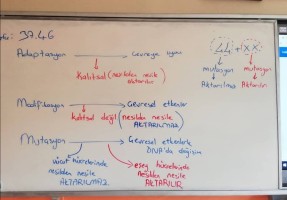 37.46
Adaptasyon → Çevreye uyum
Kalıtsal (nesilden nesile aktarılır)
♂♂ + XX
mutasyon mutasyon
Aktarılmaz Aktarılır
Modifikasyon → Çevresel etkenler
kalıtsal değil (nesilden nesile AKTARILMAZ)
Mutasyon → Çevresel etkenlerle DNA'da değişim
vücut hücrelerinde nesilden nesile AKTARILMAZ
eşey hücrelerinde nesilden nesile AKTARILIR